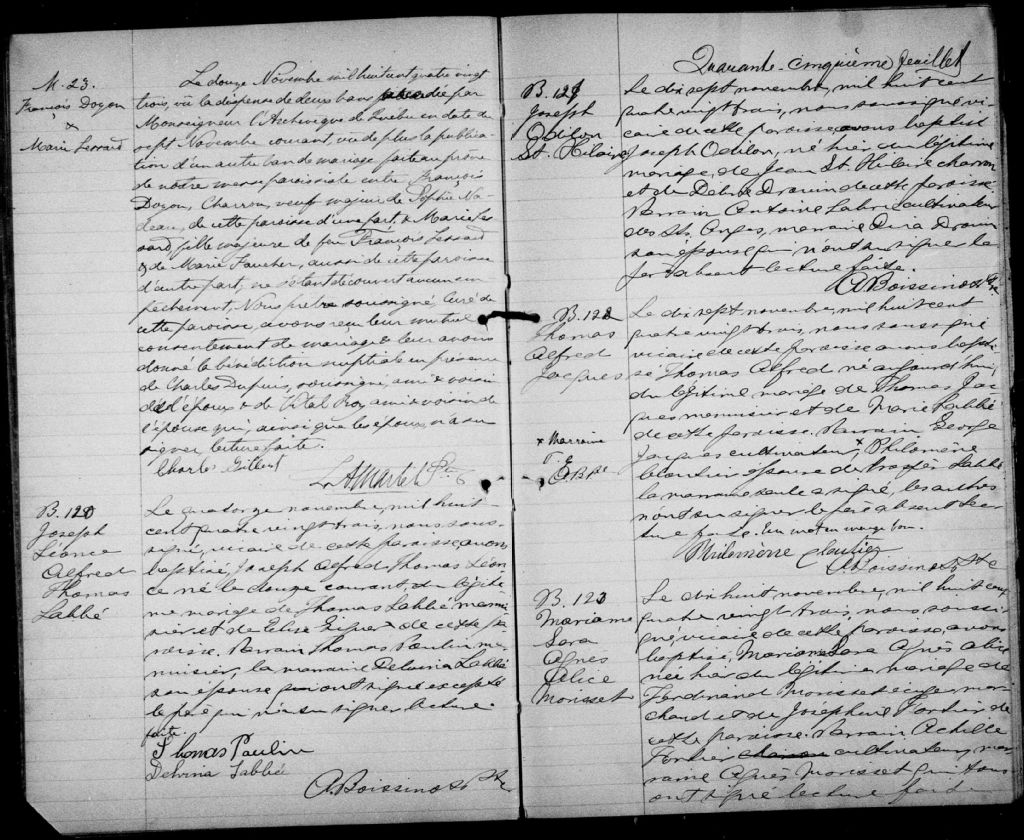 M. 23.
François Doyon
x
Marie Lessard
Le douze Novembre mil huit cent quatre vingt
trois, vu la dispense de deux bans accordée par
Monseigneur l'Archevêque de Québec en date du
sept Novembre courant, vu de plus la publica-
tion d'un autre ban de mariage faite au prône
de notre messe paroissiale entre François
Doyon, Charron, veuf majeur de Sophie Na-
deau, de cette paroisse d'une part, & Marie Les-
sard, fille majeure de feu François Lessard
& de Marie Faucher, aussi de cette paroisse
d'autre part, ne s'étant découvert aucun em-
pêchement, Nous prêtre soussigné curé de
cette paroisse, avons reçu leur mutuel
consentement de mariage & leur avons
donné la bénédiction nuptiale en présence
de Charles Dupuis, soussigné, ami & voisin
de l'époux & de Vital Roy ami & voisin de
l'épouse qui, ainsi que les époux, n'a su
signer, lecture faite.
Charles Gilbert
B. 120
Joseph
Léonce
Alfred
Thomas
Labbé
Le quatorze novembre, mil huit-
cent quatre vingt trois, nous sous-
signé, vicaire de cette paroisse avons
baptisé, Joseph Alfred Thomas Léon-
ce né le douze courant du légiti-
me mariage de Thomas Labbé menui-
sier et de Elise de cette pa-
roisse. Parrain Thomas Paulin me-
nuisier, la marraine Delvina Labbé
son épouse qui ont signé excepté
le père qui n'a su signer lecture
faite.
Thomas Paulin
Delvina Labbée
A. Boissinot Ptre
Quarante-cinquième feuillet
B. 121
Joseph
Odilon
St. Hilaire
Le dix sept novembre, mil huit cent
quatre vingt trois, nous soussigné vi-
caire de cette paroisse avons baptisé
Joseph Odilon, né hier du légitime
mariage de Jean St. Hilaire charron
et de Drouin de cette paroisse.
Parrain Antoine cultivateur
des Sts. Anges, marraine Drouin
son épouse qui n'ont su signer le
père absent lecture faite.
A. Boissinot Ptre
B. 122
Thomas
Alfred
Jacques
Le dix sept novembre, mil huit cent
quatre vingt trois, nous soussigné
vicaire de cette paroisse avons bapti-
sé Thomas Alfred né aujourd'hui,
du légitime mariage de Thomas Jac-
ques menuisier et de Marie Labbé
de cette paroisse. Parrain George
Jacques cultivateur, x Philomène
Cloutier épouse de Labbé
la marraine seule a signé, les autres
n'ont su signer le père absent lec-
ture faite. Un mot en marge bon.
x Marraine
Philomène Cloutier
A. Boissinot Ptre
B. 123
Mariame
Sara
Agnès
Alice
Morisset
Le dix huit novembre, mil huit cent
quatre vingt trois, nous soussi-
gné, vicaire de cette paroisse, avons
baptisé, Mariame Sara Agnès Alice
née hier du légitime mariage de
Ferdinand Morisset écuyer mar-
chand et de Joséphine Fortier de
cette paroisse. Parrain Achille
Fortier cultivateur, mar-
raine Agnès Morisset qui tous
ont signé lecture faite